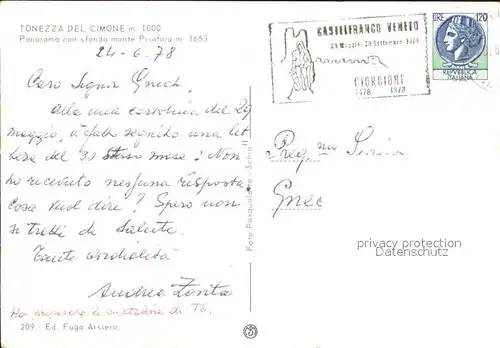 TONEZZA DEL CIMONE m. 1000
Panorama con sfondo monte Priafora m. 1653
24-6.78
Cari Signori Gnech,
Alla mia cartolina del 29
maggio, ha fatto seguito una let
tera del 30 stesso mese! Non
ho ricevuto nessuna risposta
Cosa vuol dire? Spero non
si tratti di salute.
Tante cordialità
Andrea
Ho la cartolina di
209 - Ed. Fuga Arsiero
Foto Pasqualotto - Schio
CASTELFRANCO VENETO
29 Maggio - 30 Settembre 1978
GIORGIONE
1478 1978
LIRE 120
REPUBBLICA
ITALIANA
Preg.
Gnec
privacy protection
Watermark AKPool